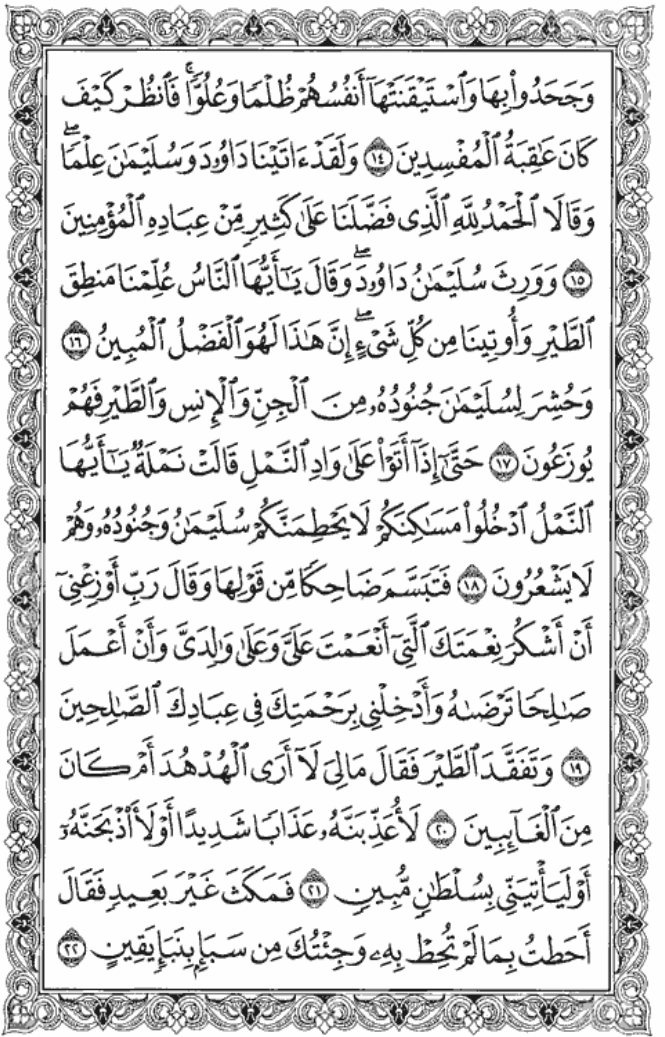 وَجَحَدُوا۟ بِهَا وَٱسْتَيْقَنَتْهَآ أَنفُسُهُمْ ظُلْمًا وَعُلُوًّا ۚ فَٱنظُرْ كَيْفَ
كَانَ عَٰقِبَةُ ٱلْمُفْسِدِينَ ١٤ وَلَقَدْ ءَاتَيْنَا دَاوُۥدَ وَسُلَيْمَٰنَ عِلْمًا ۖ
وَقَالَا ٱلْحَمْدُ لِلَّهِ ٱلَّذِى فَضَّلَنَا عَلَىٰ كَثِيرٍ مِّنْ عِبَادِهِ ٱلْمُؤْمِنِينَ
١٥ وَوَرِثَ سُلَيْمَٰنُ دَاوُۥدَ ۖ وَقَالَ يَٰٓأَيُّهَا ٱلنَّاسُ عُلِّمْنَا مَنطِقَ
ٱلطَّيْرِ وَأُوتِينَا مِن كُلِّ شَىْءٍ ۖ إِنَّ هَٰذَا لَهُوَ ٱلْفَضْلُ ٱلْمُبِينُ ١٦
وَحُشِرَ لِسُلَيْمَٰنَ جُنُودُهُۥ مِنَ ٱلْجِنِّ وَٱلْإِنسِ وَٱلطَّيْرِ فَهُمْ
يُوزَعُونَ ١٧ حَتَّىٰٓ إِذَآ أَتَوْا۟ عَلَىٰ وَادِ ٱلنَّمْلِ قَالَتْ نَمْلَةٌ يَٰٓأَيُّهَا
ٱلنَّمْلُ ٱدْخُلُوا۟ مَسَٰكِنَكُمْ لَا يَحْطِمَنَّكُمْ سُلَيْمَٰنُ وَجُنُودُهُۥ وَهُمْ
لَا يَشْعُرُونَ ١٨ فَتَبَسَّمَ ضَاحِكًا مِّن قَوْلِهَا وَقَالَ رَبِّ أَوْزِعْنِىٓ
أَنْ أَشْكُرَ نِعْمَتَكَ ٱلَّتِىٓ أَنْعَمْتَ عَلَىَّ وَعَلَىٰ وَٰلِدَىَّ وَأَنْ أَعْمَلَ
صَٰلِحًا تَرْضَىٰهُ وَأَدْخِلْنِى بِرَحْمَتِكَ فِى عِبَادِكَ ٱلصَّٰلِحِينَ
١٩ وَتَفَقَّدَ ٱلطَّيْرَ فَقَالَ مَالِىَ لَآ أَرَى ٱلْهُدْهُدَ أَمْ كَانَ
مِنَ ٱلْغَآئِبِينَ ٢٠ لَأُعَذِّبَنَّهُۥ عَذَابًا شَدِيدًا أَوْ لَأَا۟ذْبَحَنَّهُۥٓ
أَوْ لَيَأْتِيَنِّى بِسُلْطَٰنٍ مُّبِينٍ ٢١ فَمَكَثَ غَيْرَ بَعِيدٍ فَقَالَ
أَحَطتُ بِمَا لَمْ تُحِطْ بِهِۦ وَجِئْتُكَ مِن سَبَإٍۭ بِنَبَإٍ يَقِينٍ ٢٢